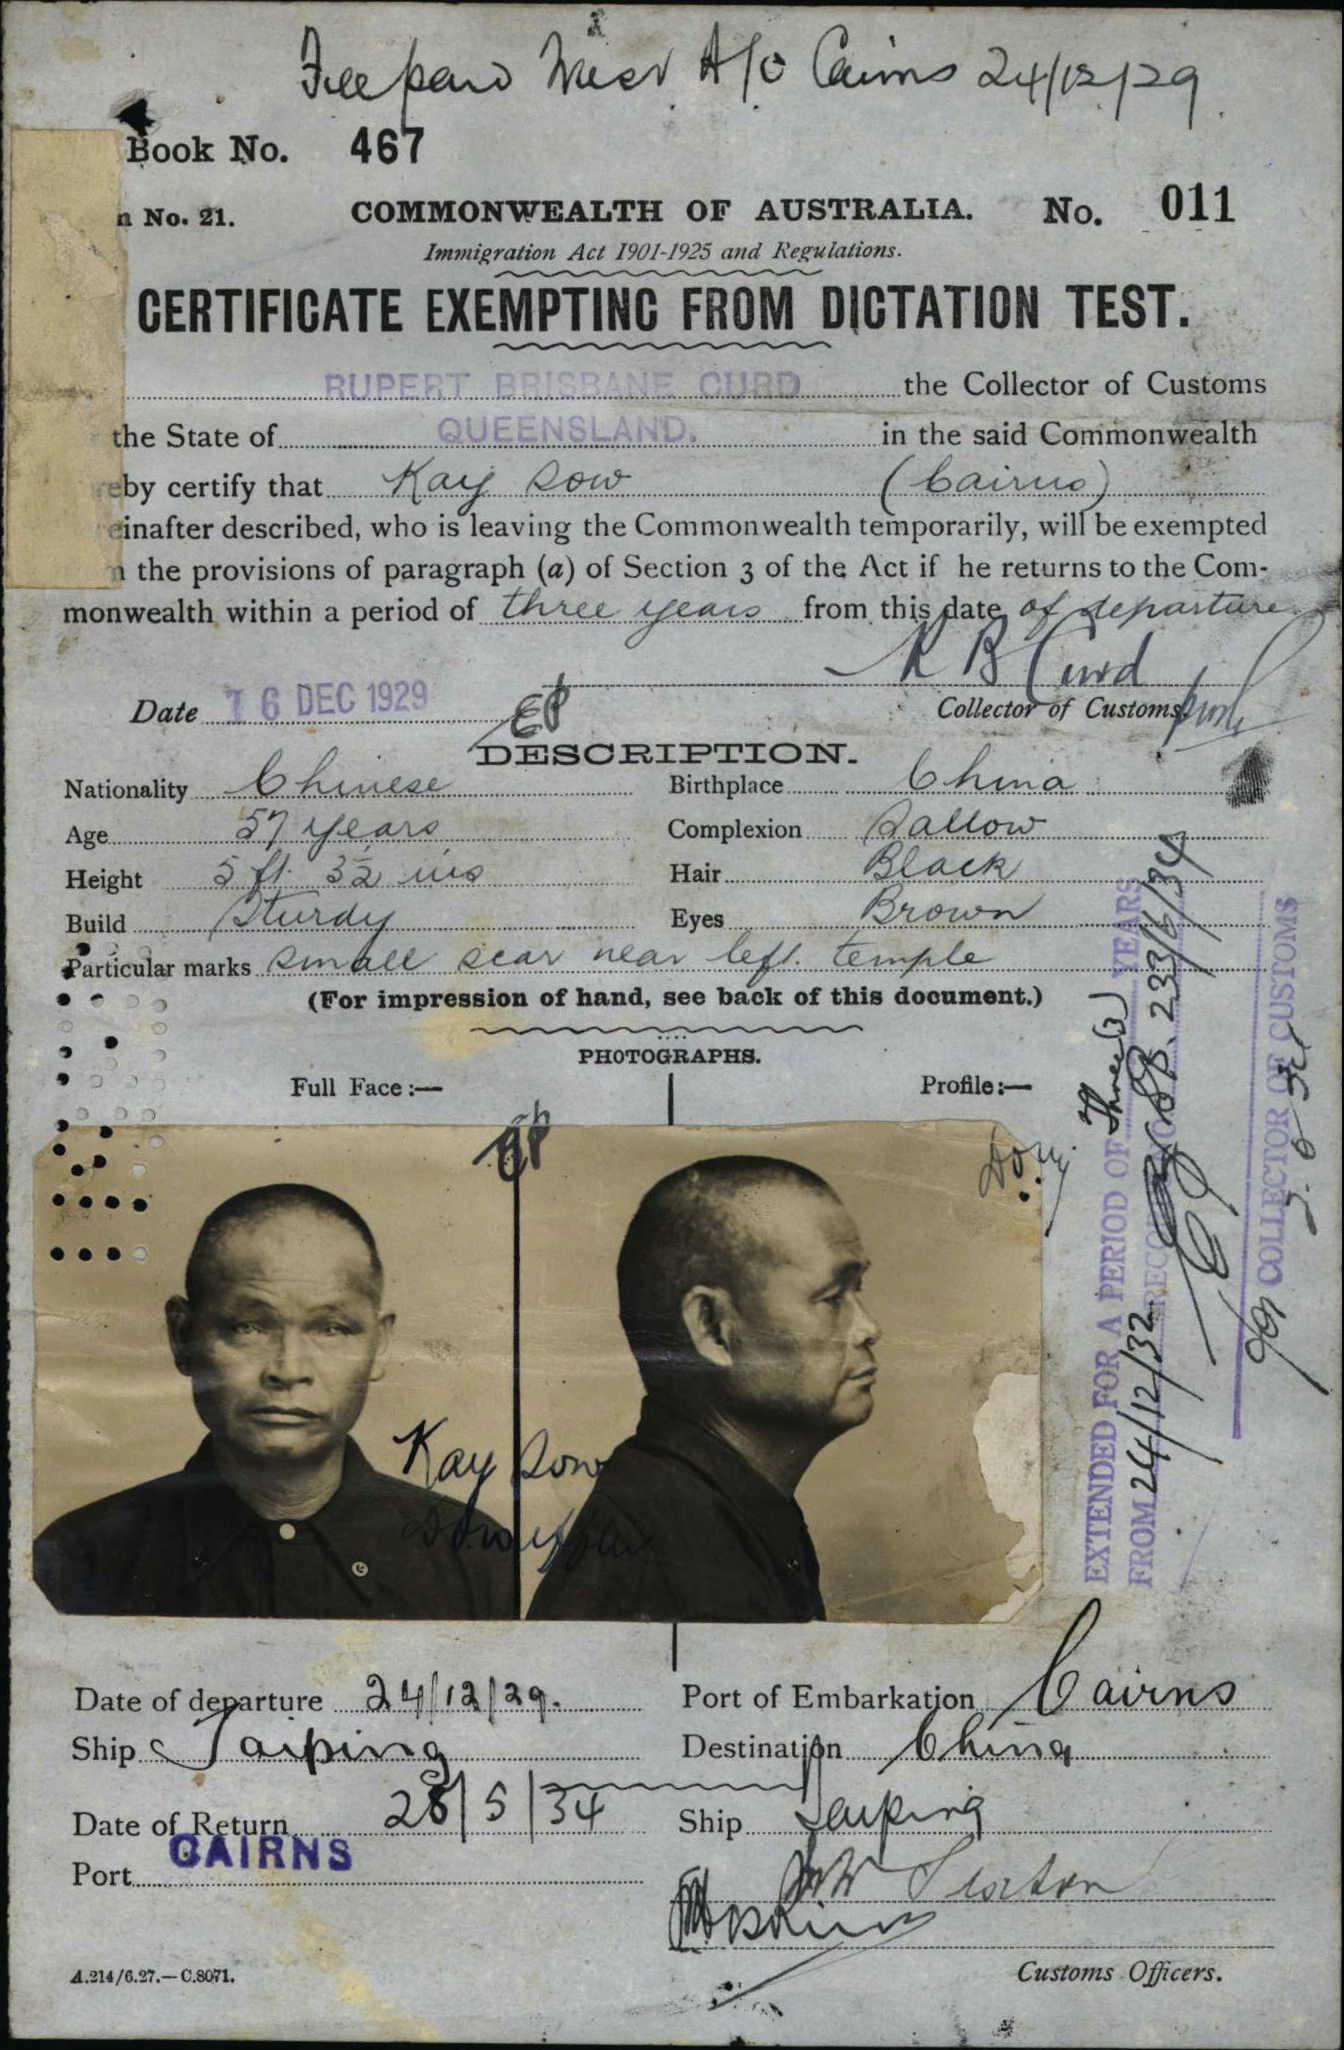 Cairns 24/12/29
Book No. 467
No. 21. COMMONWEALTH OF AUSTRALIA. No. 011
Immigration Act 1901-1925 and Regulations.
CERTIFICATE EXEMPTING FROM DICTATION TEST.
RUPERT BRISBANE CURD the Collector of Customs
the State of QUEENSLAND. in the said Commonwealth
eby certify that Kay Sow (Cairns)
einafter described, who is leaving the Commonwealth temporarily, will be exempted
the provisions of paragraph (a) of Section 3 of the Act if he returns to the Com-
monwealth within a period of three years from this date of departure
R B Curd
Date 16 DEC 1929 Collector of Customs.
DESCRIPTION.
Nationality Chinese Birthplace China
Age 57 years Complexion Sallow
Height 5 ft. 3½ ins Hair Black
Build Sturdy Eyes Brown
Particular marks small scar near left temple
(For impression of hand, see back of this document.)
PHOTOGRAPHS.
Full Face:— Profile:—
Kay Sow
EXTENDED FOR A PERIOD OF Three (3) YEARS
FROM 24/12/32
23/6/34
for COLLECTOR OF CUSTOMS
Date of departure 24/12/29. Port of Embarkation Cairns
Ship Taiping Destination China
Date of Return 28/5/34 Ship Taiping
Port CAIRNS
A.214/6.27.—C.8071. Customs Officers.